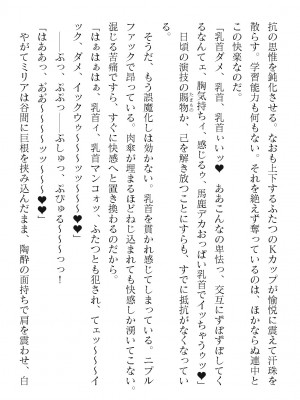 抗の思惟を鈍化させる。なおも上下するふたつのKカップが愉悦に震えて汗珠を
散らす。学習能力も何もない。それを絶えず奪っているのは、ほかならぬ連中と
この快楽なのだ。
「乳首ダメ、乳首、乳首ぃいッ♥ ああこんなの卑怯っ、交互にずぼずぼしてく
るなんてェ、胸気持ちィ、感じるゥ、馬鹿デカおっぱい乳首でイッちゃうゥッ♥」
日頃の演技の賜物か、己を解き放つことにすらも、すでに抵抗がなくなって
いる。
そうだ、もう誤魔化しは効かない。乳首を貫かれ感じてしまっている。ニプル
ファックで昂っている。肉傘が埋まるほどねじ込まれても快感しか湧いてこない。
混じる苦痛ですら、すぐに快感へと置き換わるのだから。
「はぁはぁはぁ、乳首ィ、乳首マンコォッ、ふたつとも犯され、てェッ〜〜〜イ
ック、ダメ、イックウゥ〜〜〜ッッ♥〜〜♥」
――ぶっ、ぶぶっ……ぶしゅっ、ぶぴゅる〜〜〜っっ！
「はああっ、ああ〜〜〜〜ッッ〜〜♥」
やがてミリアは谷間に巨根を挟み込んだまま、陶酔の面持ちで肩を震わせ、白